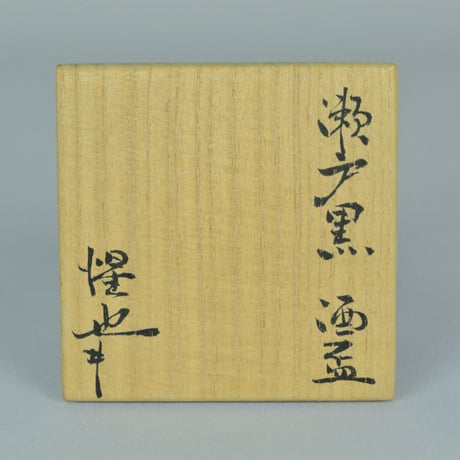 瀬戸黒 酒盃
惺也